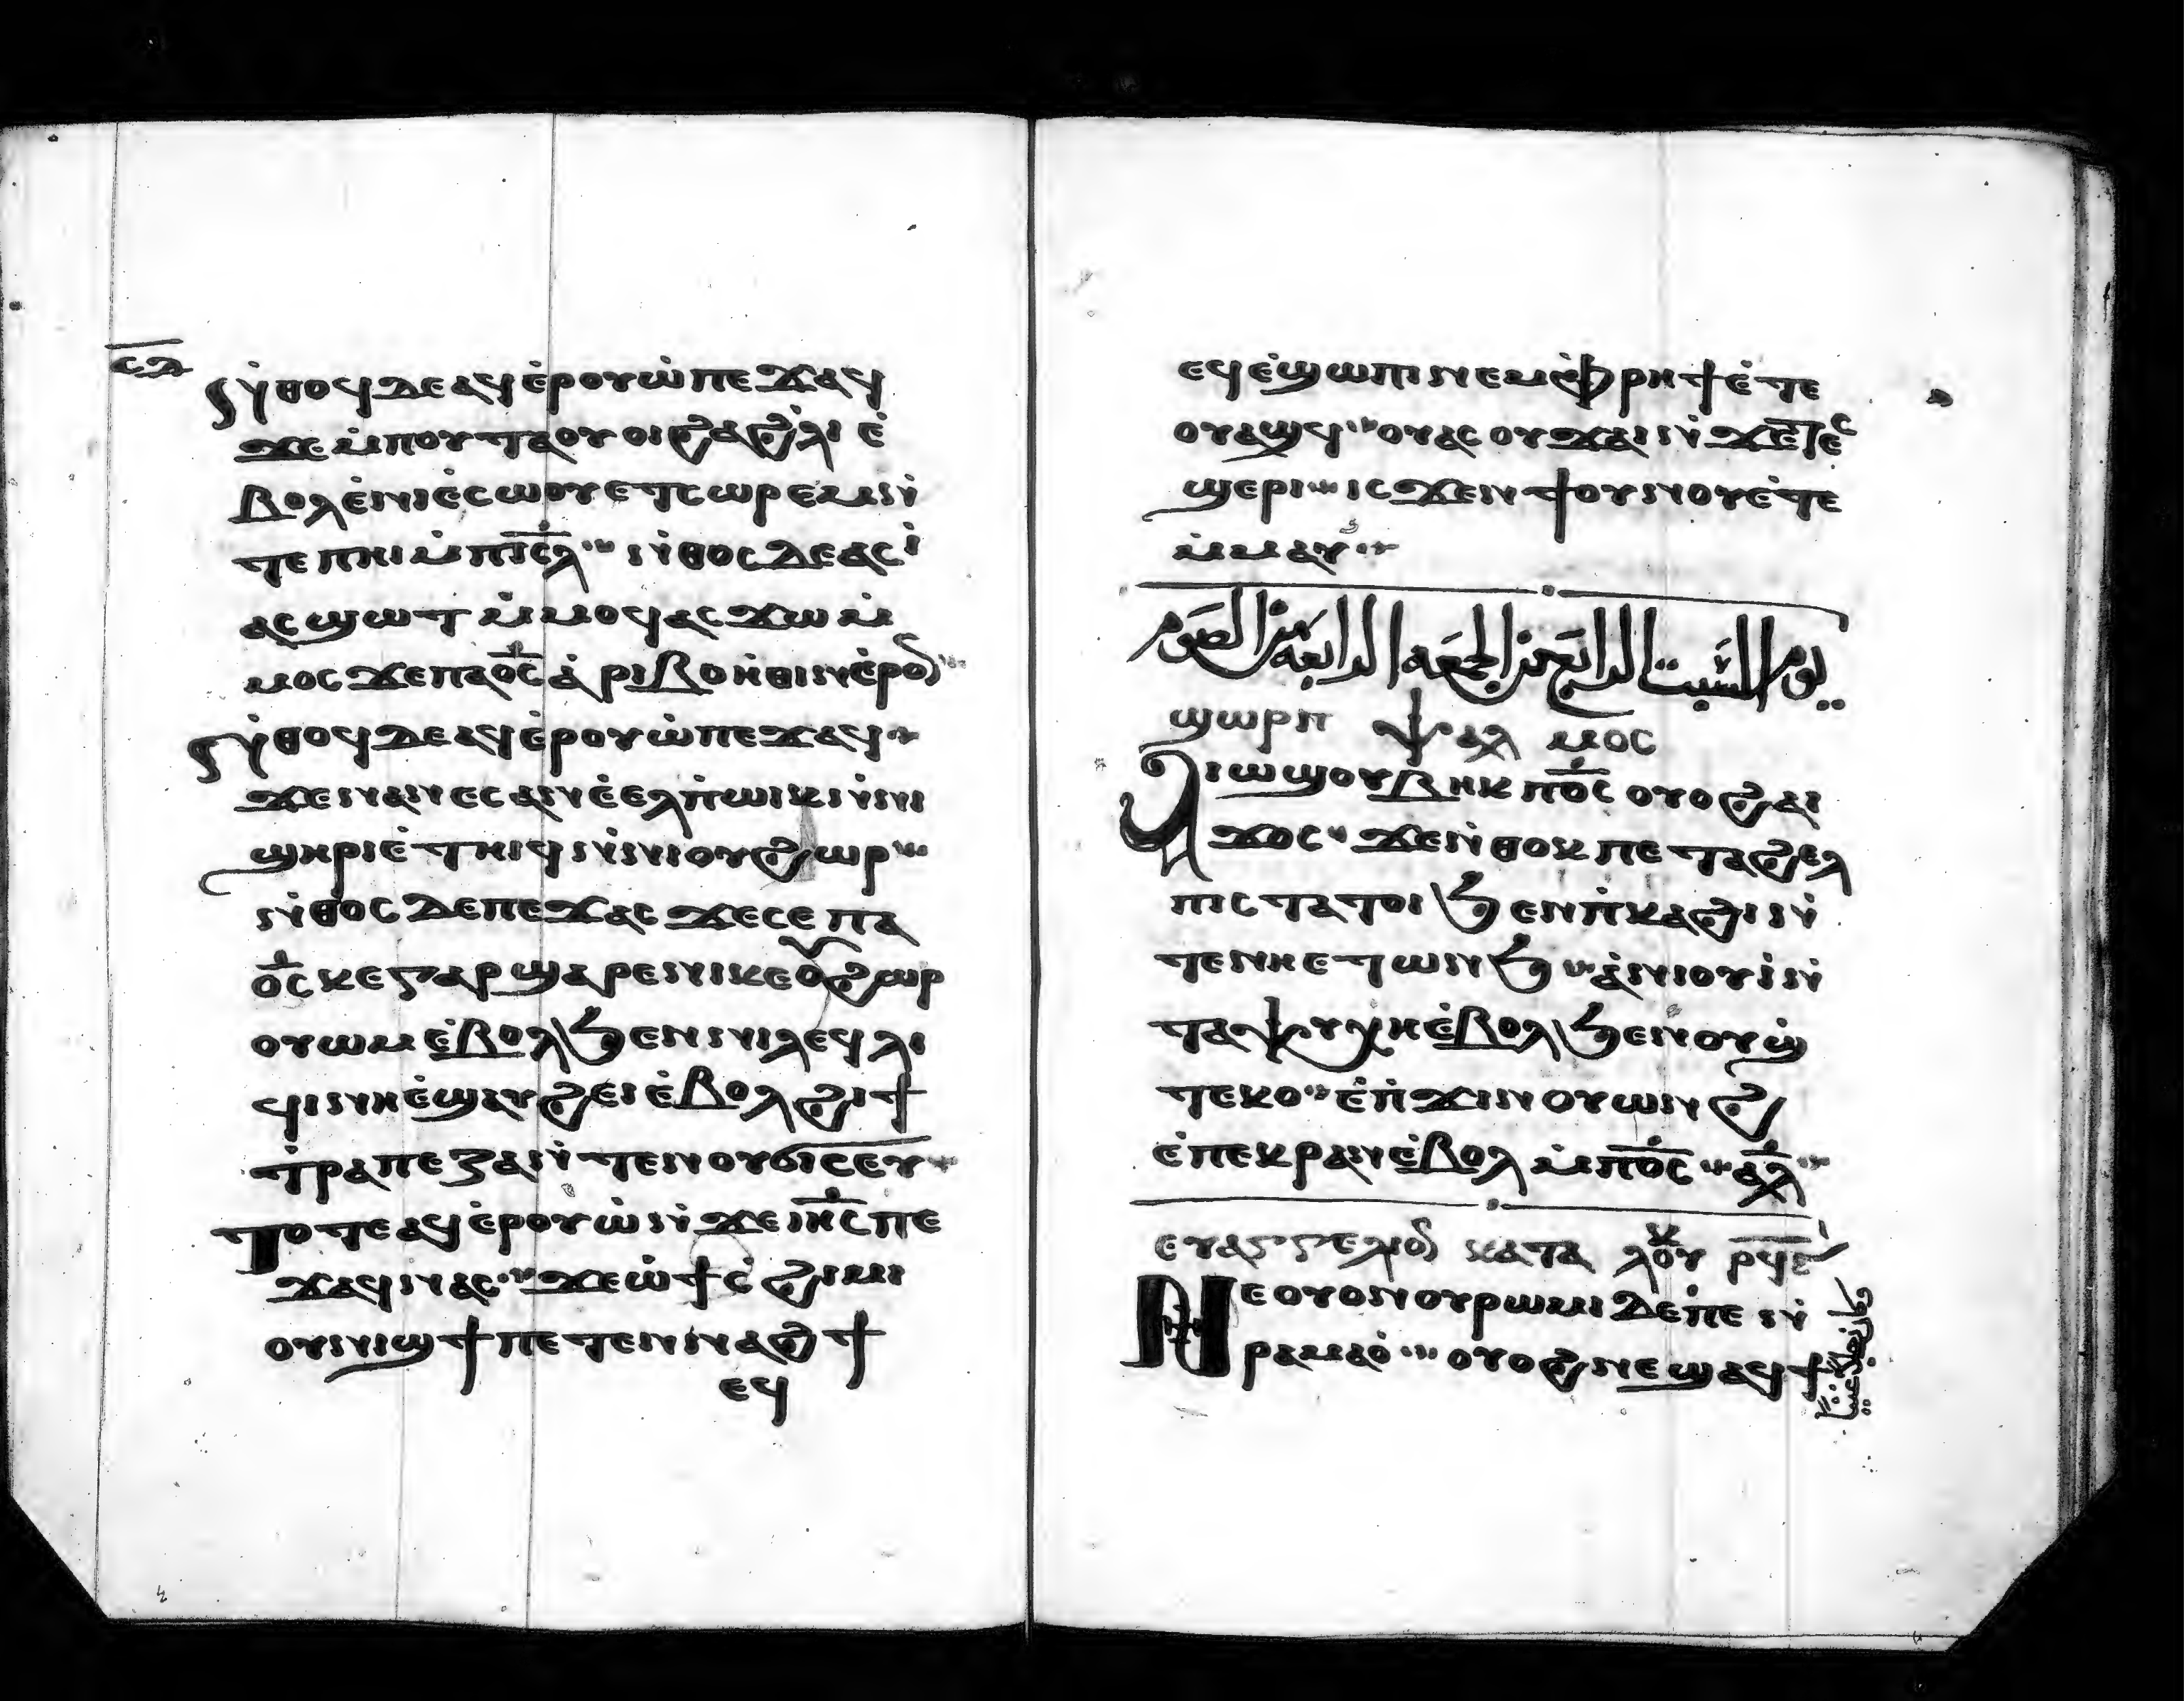 ⲥⲇ
ⲛ̇ⲑⲟϥⲇⲉⲁϥⲉ̇ⲣⲟⲩⲱ̇ⲡⲉϫⲁϥ
ϫⲉⲙ̇ⲡⲟⲩⲧⲁⲟⲩⲟⲓϩⲁϩ̇ⲗⲓ ⲉ̇
ⲃⲟⲗⲉ̇ⲛⲓⲉ̇ⲥⲱⲟⲩⲉⲧⲥⲱⲣⲉⲙⲛ̇
ⲧⲉⲡⲏⲓⲙ̇ⲡⲓ̅ⲥ̅ⲗ̅ ⲛ̇ⲑⲟⲥⲇⲉⲁⲥⲓ̇
ⲁⲥϣⲱⲧ ⲙ̇ⲙⲟϥⲁⲥϫⲱⲙ̇
ⲙⲟⲥϫⲉⲡⲁⲟ̅ⲥ̅ⲁ̇ⲣⲓⲃⲟⲏ̇ⲑⲓⲛⲉ̇ⲣⲟ
ⲛ̇ⲑⲟϥⲇⲉⲁϥⲉ̇ⲣⲟⲩⲱ̇ⲡⲉϫⲁϥ
ϫⲉⲛⲁⲛⲉⲥⲁⲛⲉ̇ⲉⲗⲡ̇ⲱⲓⲕⲛ̇ⲛⲓ
ϣⲏⲣⲓⲉ̇ⲧⲏⲓϥⲛ̇ⲛⲓⲟⲩϩⲱⲣ
ⲛ̇ⲑⲟⲥ ⲇⲉⲡⲉϫⲁⲥ ϫⲉⲥⲉ ⲡⲁ
ⲟ̅ⲥ̅ ⲕⲉⲅⲁⲣ ϣⲁⲣⲉⲛⲓⲕⲉⲟⲩϩⲱⲣ
ⲟⲩⲱⲙⲉ̇ⲃⲟⲗϧⲉⲛⲛⲓⲗⲉϥⲗⲓ
ϥⲓⲛⲏⲉ̇ϣⲁⲩϩⲉⲓⲉ̇ⲃⲟⲗϩⲓϯ
ⲧ̇ⲣⲁⲡⲉⲍⲁⲛ̇ⲧⲉⲛⲟⲩϭⲓⲥⲉⲩ
ⲧⲟⲧⲉⲁϥⲉ̇ⲣⲟⲩⲱ̇ⲛ̇ϫⲉⲓⲏ̅ⲥ̅ⲡⲉ
ϫⲁϥⲛⲁⲥ ϫⲉⲱ̇ϯⲥ̇ϩⲓⲙⲓ
ⲟⲩⲛⲓϣϯⲡⲉⲧⲉⲛⲛⲁϩϯ
ⲉϥ
ⲉϥⲉ̇ϣⲱⲡⲓⲛⲉⲙⲉ̇ⲫⲣⲏϯⲉ̇ⲧⲉ
ⲟⲩⲁϣϥ ⲟⲩⲁⲥⲟⲩϫⲁⲓⲛ̇ϫⲉⲧⲉⲥ
ϣⲉⲣⲓ ⲓⲥϫⲉⲛϯⲟⲩⲛⲟⲩⲉ̇ⲧⲉ
ⲙ̇ⲙⲁⲩ
يوم السبت الرابع من الجمعه الرابعه من الصوم
ϣⲱⲣⲡ ⲯⲁⲗⲙⲟⲥ
ⲁⲓⲱϣⲟⲩⲃⲏⲕ ⲡⲟ̅ⲥ̅ ⲟⲩⲟϩⲁⲓ
ϫⲟⲥ ϫⲉⲛ̇ⲑⲟⲕ ⲡⲉ ⲧⲁϩⲉⲗ
ⲡⲓⲥ ⲧⲁⲧⲟⲓ ϧⲉⲛⲡ̇ⲕⲁϩⲓ ⲛ̇
ⲧⲉⲛⲏⲉⲧⲱⲛϧ ⲁ̇ⲛⲓⲟⲩⲓ̇ⲛ̇
ⲧⲁⲯⲩⲭⲏⲉ̇ⲃⲟⲗϧⲉⲛⲟⲩϣ̇
ⲧⲉⲕⲟ ⲉ̇ⲡ̇ϫⲓⲛⲟⲩⲱⲛϩ
ⲉ̇ⲡⲉⲕⲣⲁⲛⲉ̇ⲃⲟⲗ ⲙ̇ⲡⲟ̅ⲥ̅ ⲁ̅ⲗ̅
ⲉⲩⲁⲅⲅⲉⲗⲓⲟ ⲕⲁⲧⲁ ⲗⲟⲩⲕ ⲣϥⲉ
ⲛⲉⲟⲩⲟⲛⲟⲩⲣⲱⲙⲓⲇⲉⲡ̇ⲉ ⲛ̇
ⲣⲁⲙⲁⲟ̇ ⲟⲩⲟϩⲛⲉϣⲁϥϯ